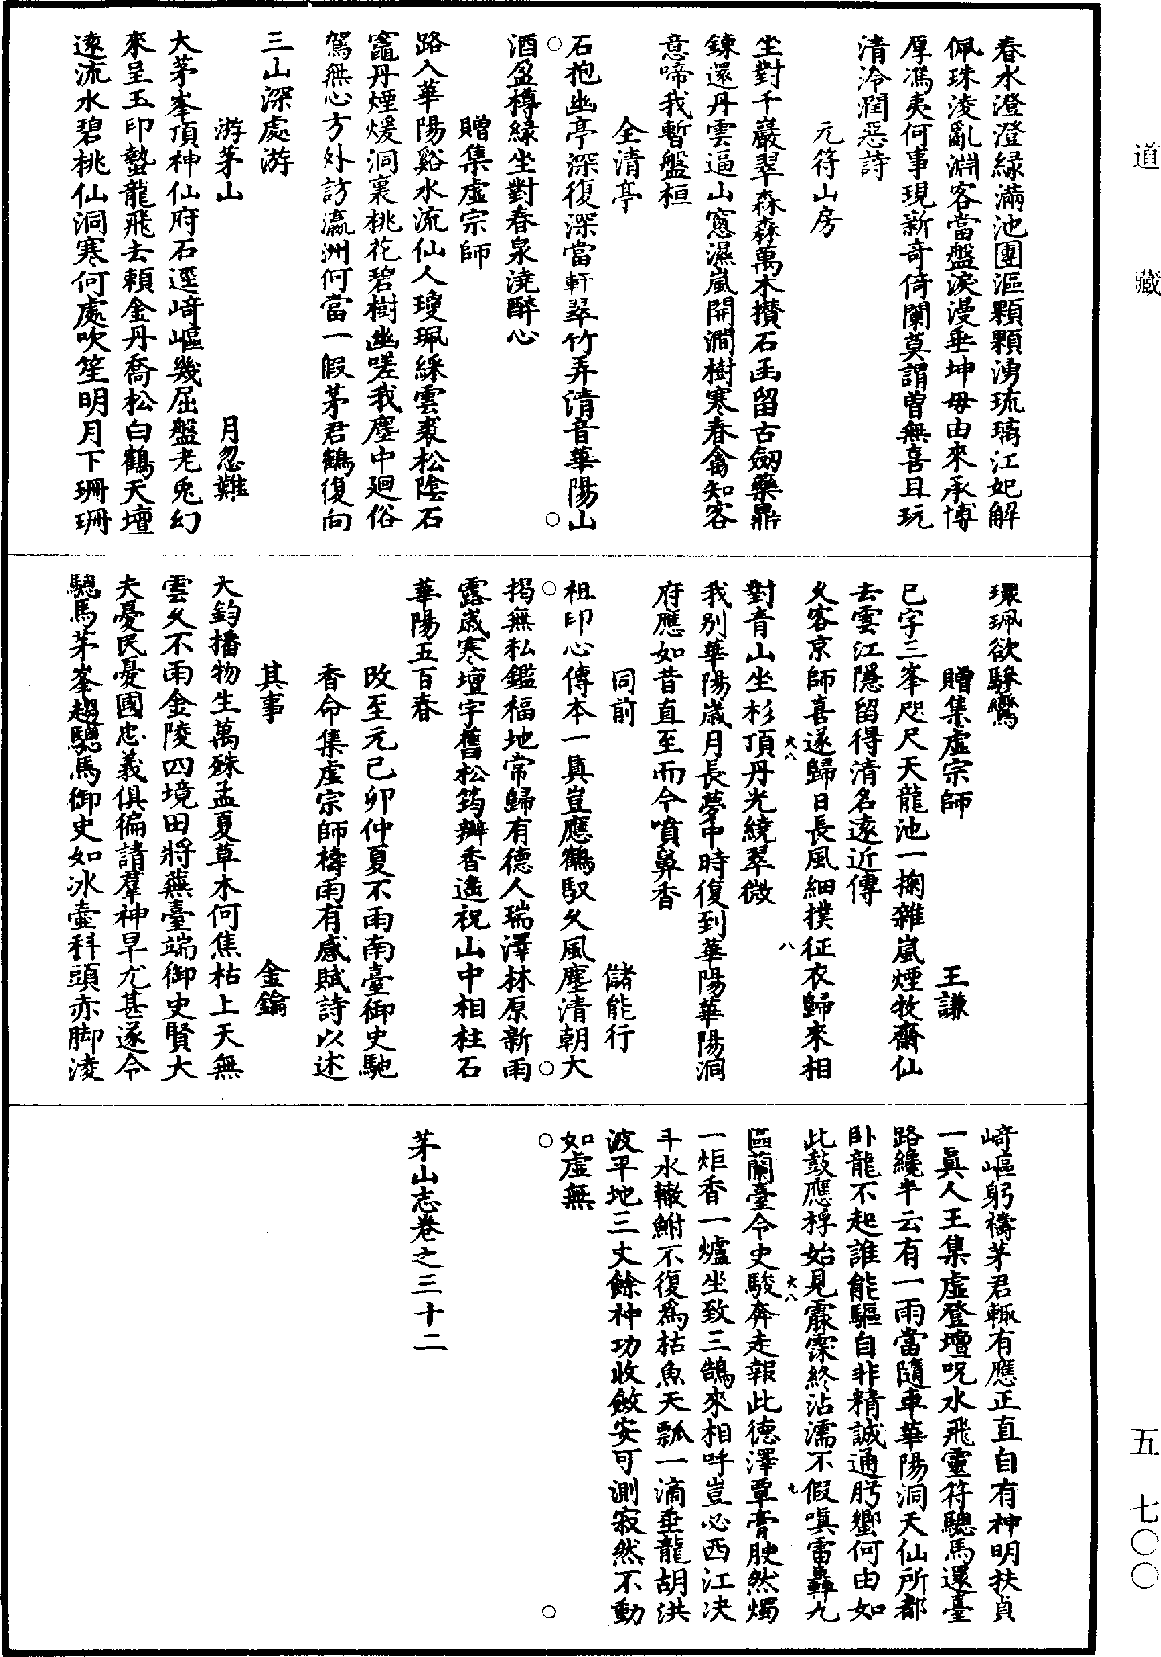 道藏
春水澄澄緑滿池團漚顆顆湧琉璃江妃解
佩珠淩亂淵客當盤淚漫垂坤毋由來承博
厚馮夷何事現新奇倚闌莫謂曽無喜且玩
清泠潤惡詩
元符山房
坐對千巖翠森森萬木攢石函留古劔藥鼎
鍊還丹雲逼山窻濕嵐開澗樹寒春禽知客
意啼我暫盤桓
全清亭
石抱幽亭深復深當軒翠竹弄清音華陽山
酒盈樽緑坐對春泉澆醉心
贈集虛宗師
路入華陽谿水流仙人瓊珮綵雲裘松陰石
竈丹煙煖洞裏桃花碧樹幽嗟我塵中廻俗
駕無心方外訪瀛洲何當一假茅君鶴復向
三山深處游
游茅山 月忽難
大茅峯頂神仙府石逕﨑嶇幾屈盤老兎幻
來呈玉印蟄龍飛去頼金丹喬松白鶴天壇
逺流水碧桃仙洞寒何處吹笙明月下珊珊
環珮欲驂鸞
贈集虛宗師 王謙
已字三峯咫尺天龍池一掬雜嵐煙牧齋仙
去雲江隱留得清名逺近傳
久客京師喜遂歸日長風細撲征衣歸來相
對青山坐杉頂丹光繞翠微
我别華陽歳月長夢中時復到華陽華陽洞
府應如昔直至而今噴鼻香
同前 儲能行
祖印心傳本一真豈應鶴馭久風塵清朝大
揭無私鑑福地常歸有德人瑞澤林原新雨
露歳寒壇宇舊松筠瓣香遙祝山中相柱石
華陽五百春
改至元己卯仲夏不雨南臺御史馳
香命集虛宗師禱雨有感賦詩以述
其事 金鑰
大鈞播物生萬殊孟夏草木何焦枯上天無
雲久不雨金陵四境田將蕪臺端御史賢大
夫憂民憂國忠義俱徧諸羣神早尤甚遂令
驄馬茅峯趨驄馬御史如冰壷科頭赤脚淩
﨑嶇躬禱茅君輙有應正直自有神明扶貞
一眞人王集虛登壇呪水飛靈符驄馬還臺
路纔半云有一雨當隨車華陽洞天仙所都
卧龍不起誰能驅自非精誠通肹蠁何由如
此鼓應桴始見霡霂終沾濡不假嗔雷轟九
區蘭臺令史駿奔走報此德澤覃膏腴然燭
一炬香一爐坐致三鵠來相呼豈必西江决
斗水轍鮒不復爲枯魚天瓢一滴垂龍胡洪
波平地三丈餘神功收斂安可測寂然不動
如虛無
茅山志卷之三十二
五 七〇〇